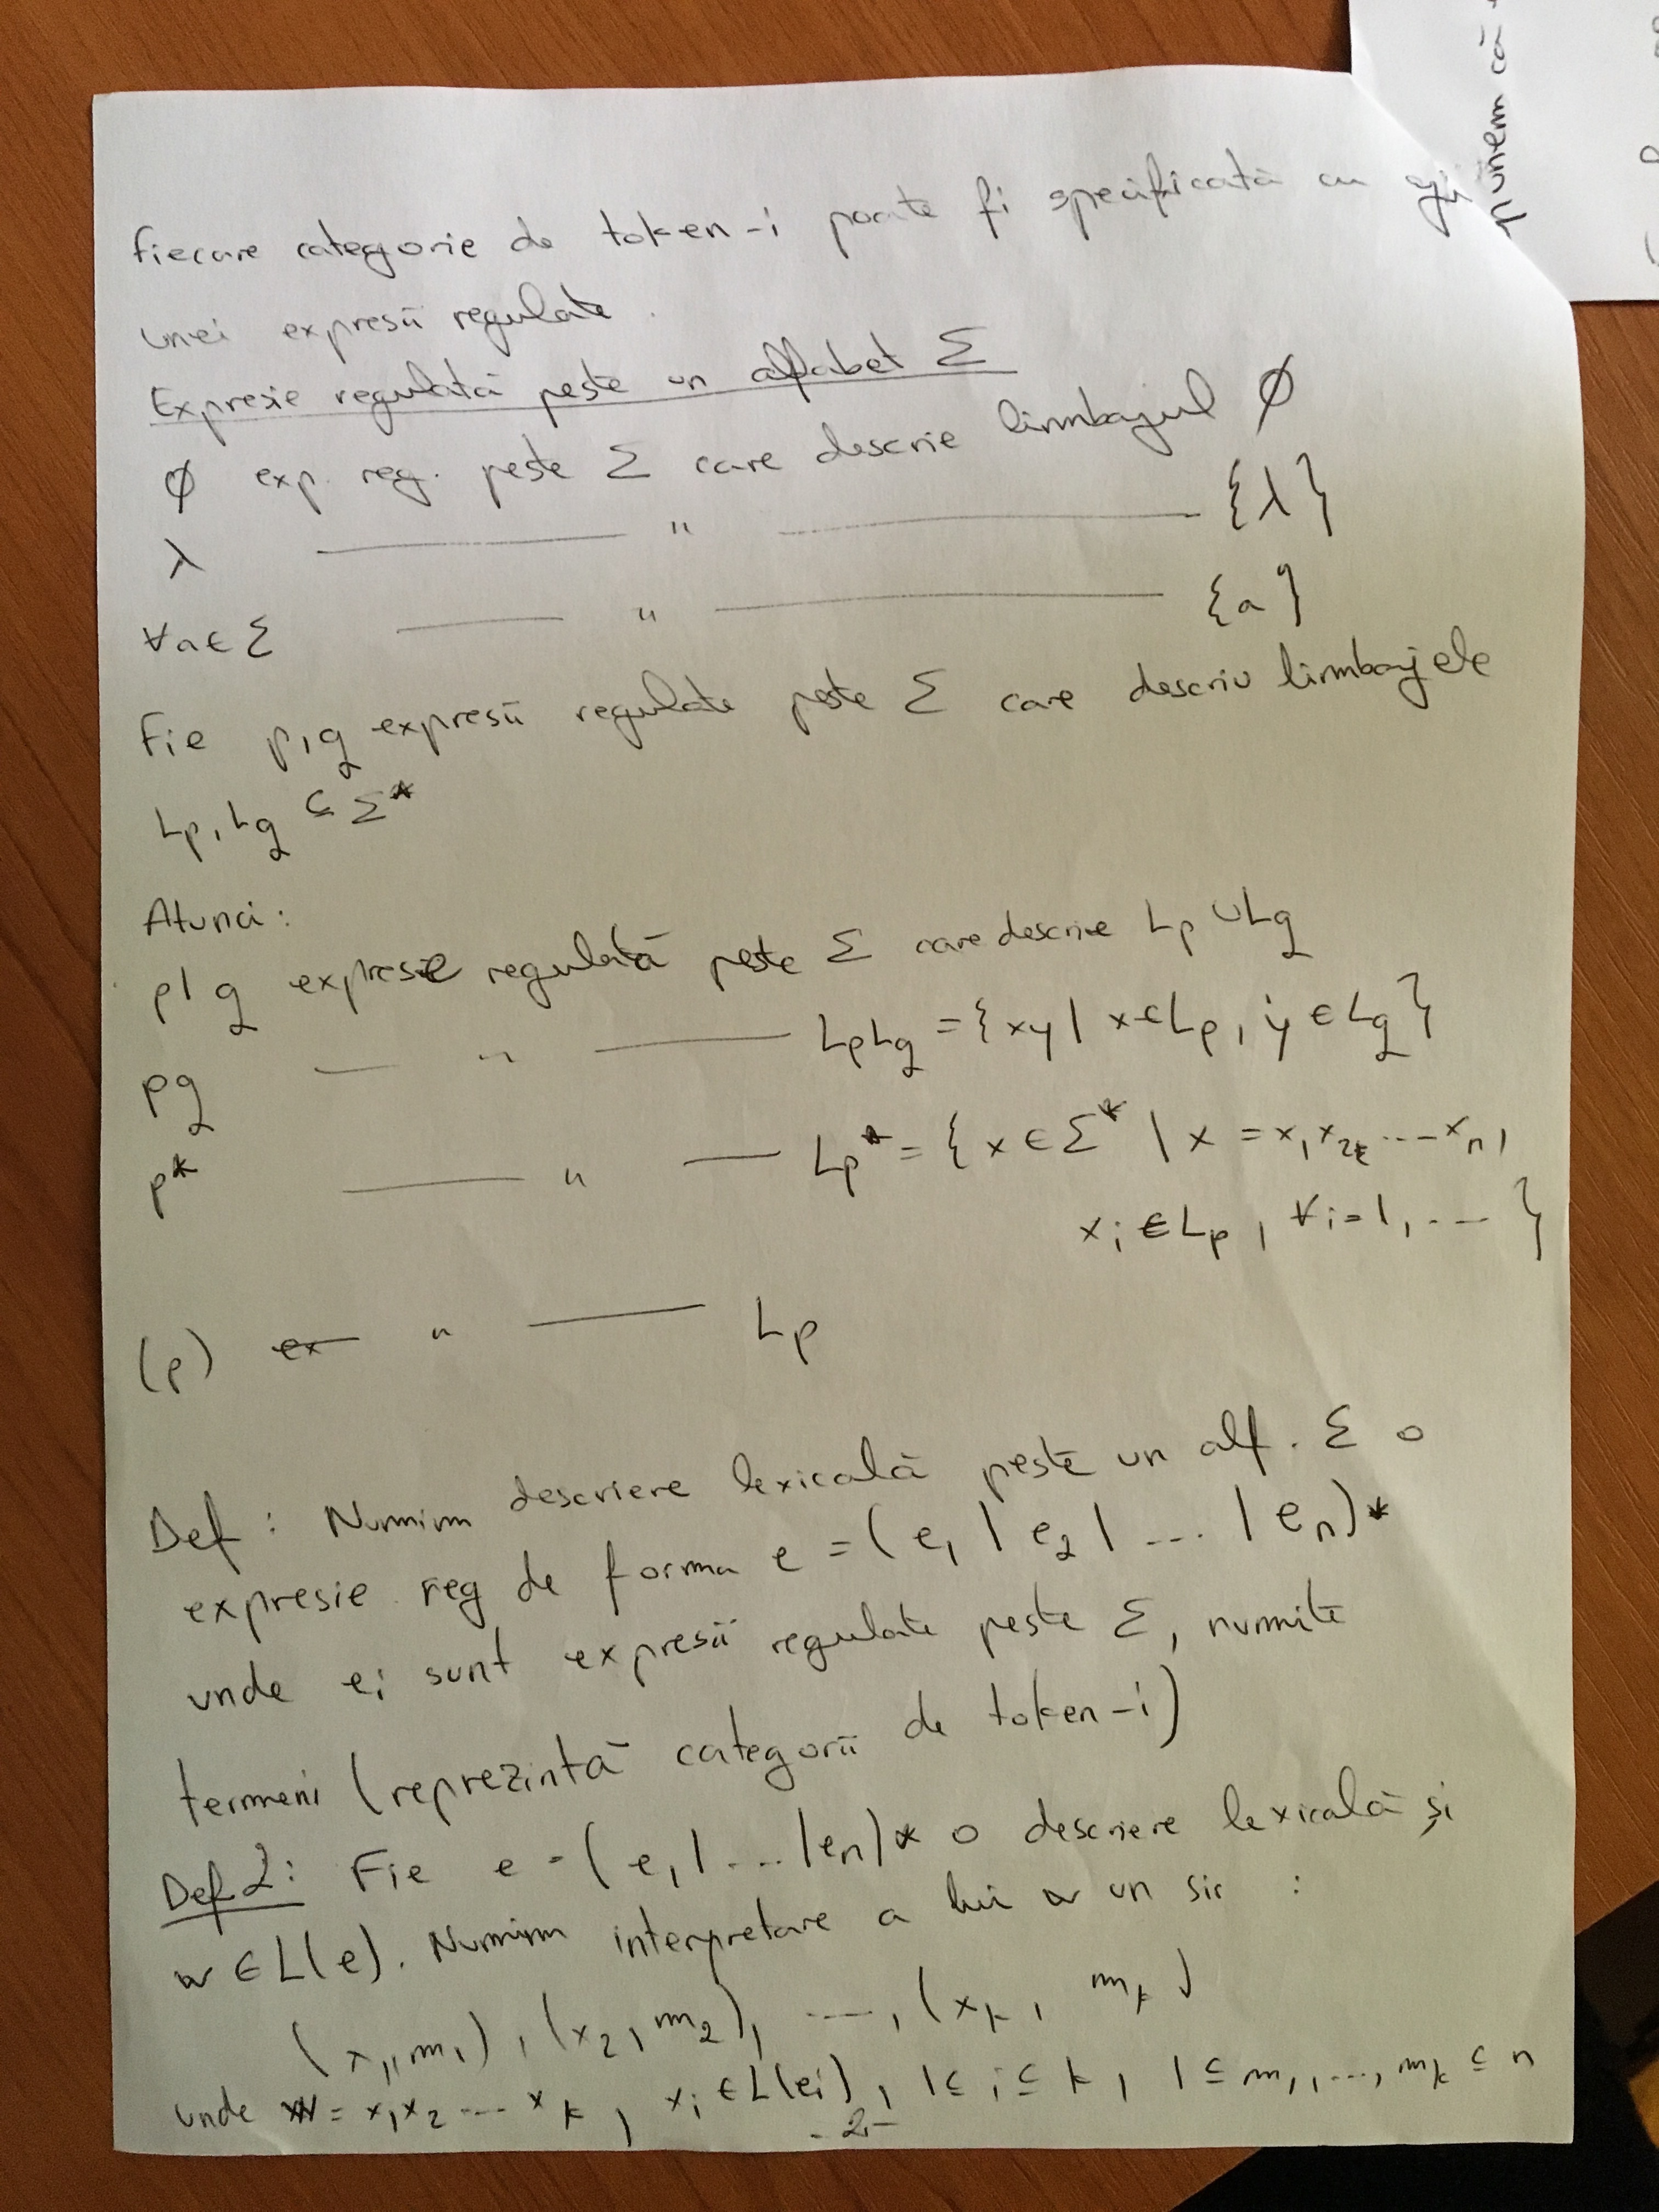 Fiecare categorie de token-i poate fi specificată cu aju
unei expresii regulate.
Expresie regulată peste un alfabet Σ
∅ exp. reg. peste Σ care descrie limbajul ∅
λ ——— " ——— {λ}
∀a∈Σ ——— " ——— {a}
Fie p,q expresii regulate peste Σ care descriu limbajele
Lp, Lq ⊆ Σ*
Atunci:
p|q expresie regulată peste Σ care descrie Lp ∪ Lq
pq — " — LpLq = {xy | x∈Lp, y∈Lq}
p* — " — Lp* = {x∈Σ* | x = x₁x₂...xₙ,
xᵢ∈Lp, ∀i=1,...}
(p) — " — Lp
Def: Numim descriere lexicală peste un alf. Σ o
expresie reg de forma e = (e₁ | e₂ | ... | eₙ)*
unde eᵢ sunt expresii regulate peste Σ, numite
termeni (reprezintă categorii de token-i)
Def 2: Fie e = (e₁ | ... | eₙ)* o descriere lexicală și
w ∈ L(e). Numim interpretare a lui w un sir :
(x₁,m₁), (x₂,m₂), ..., (xₖ, mₖ)
unde w = x₁x₂...xₖ, xᵢ∈L(eᵢ), 1≤i≤k, 1≤m₁,...,mₖ≤n
-2-
punem că